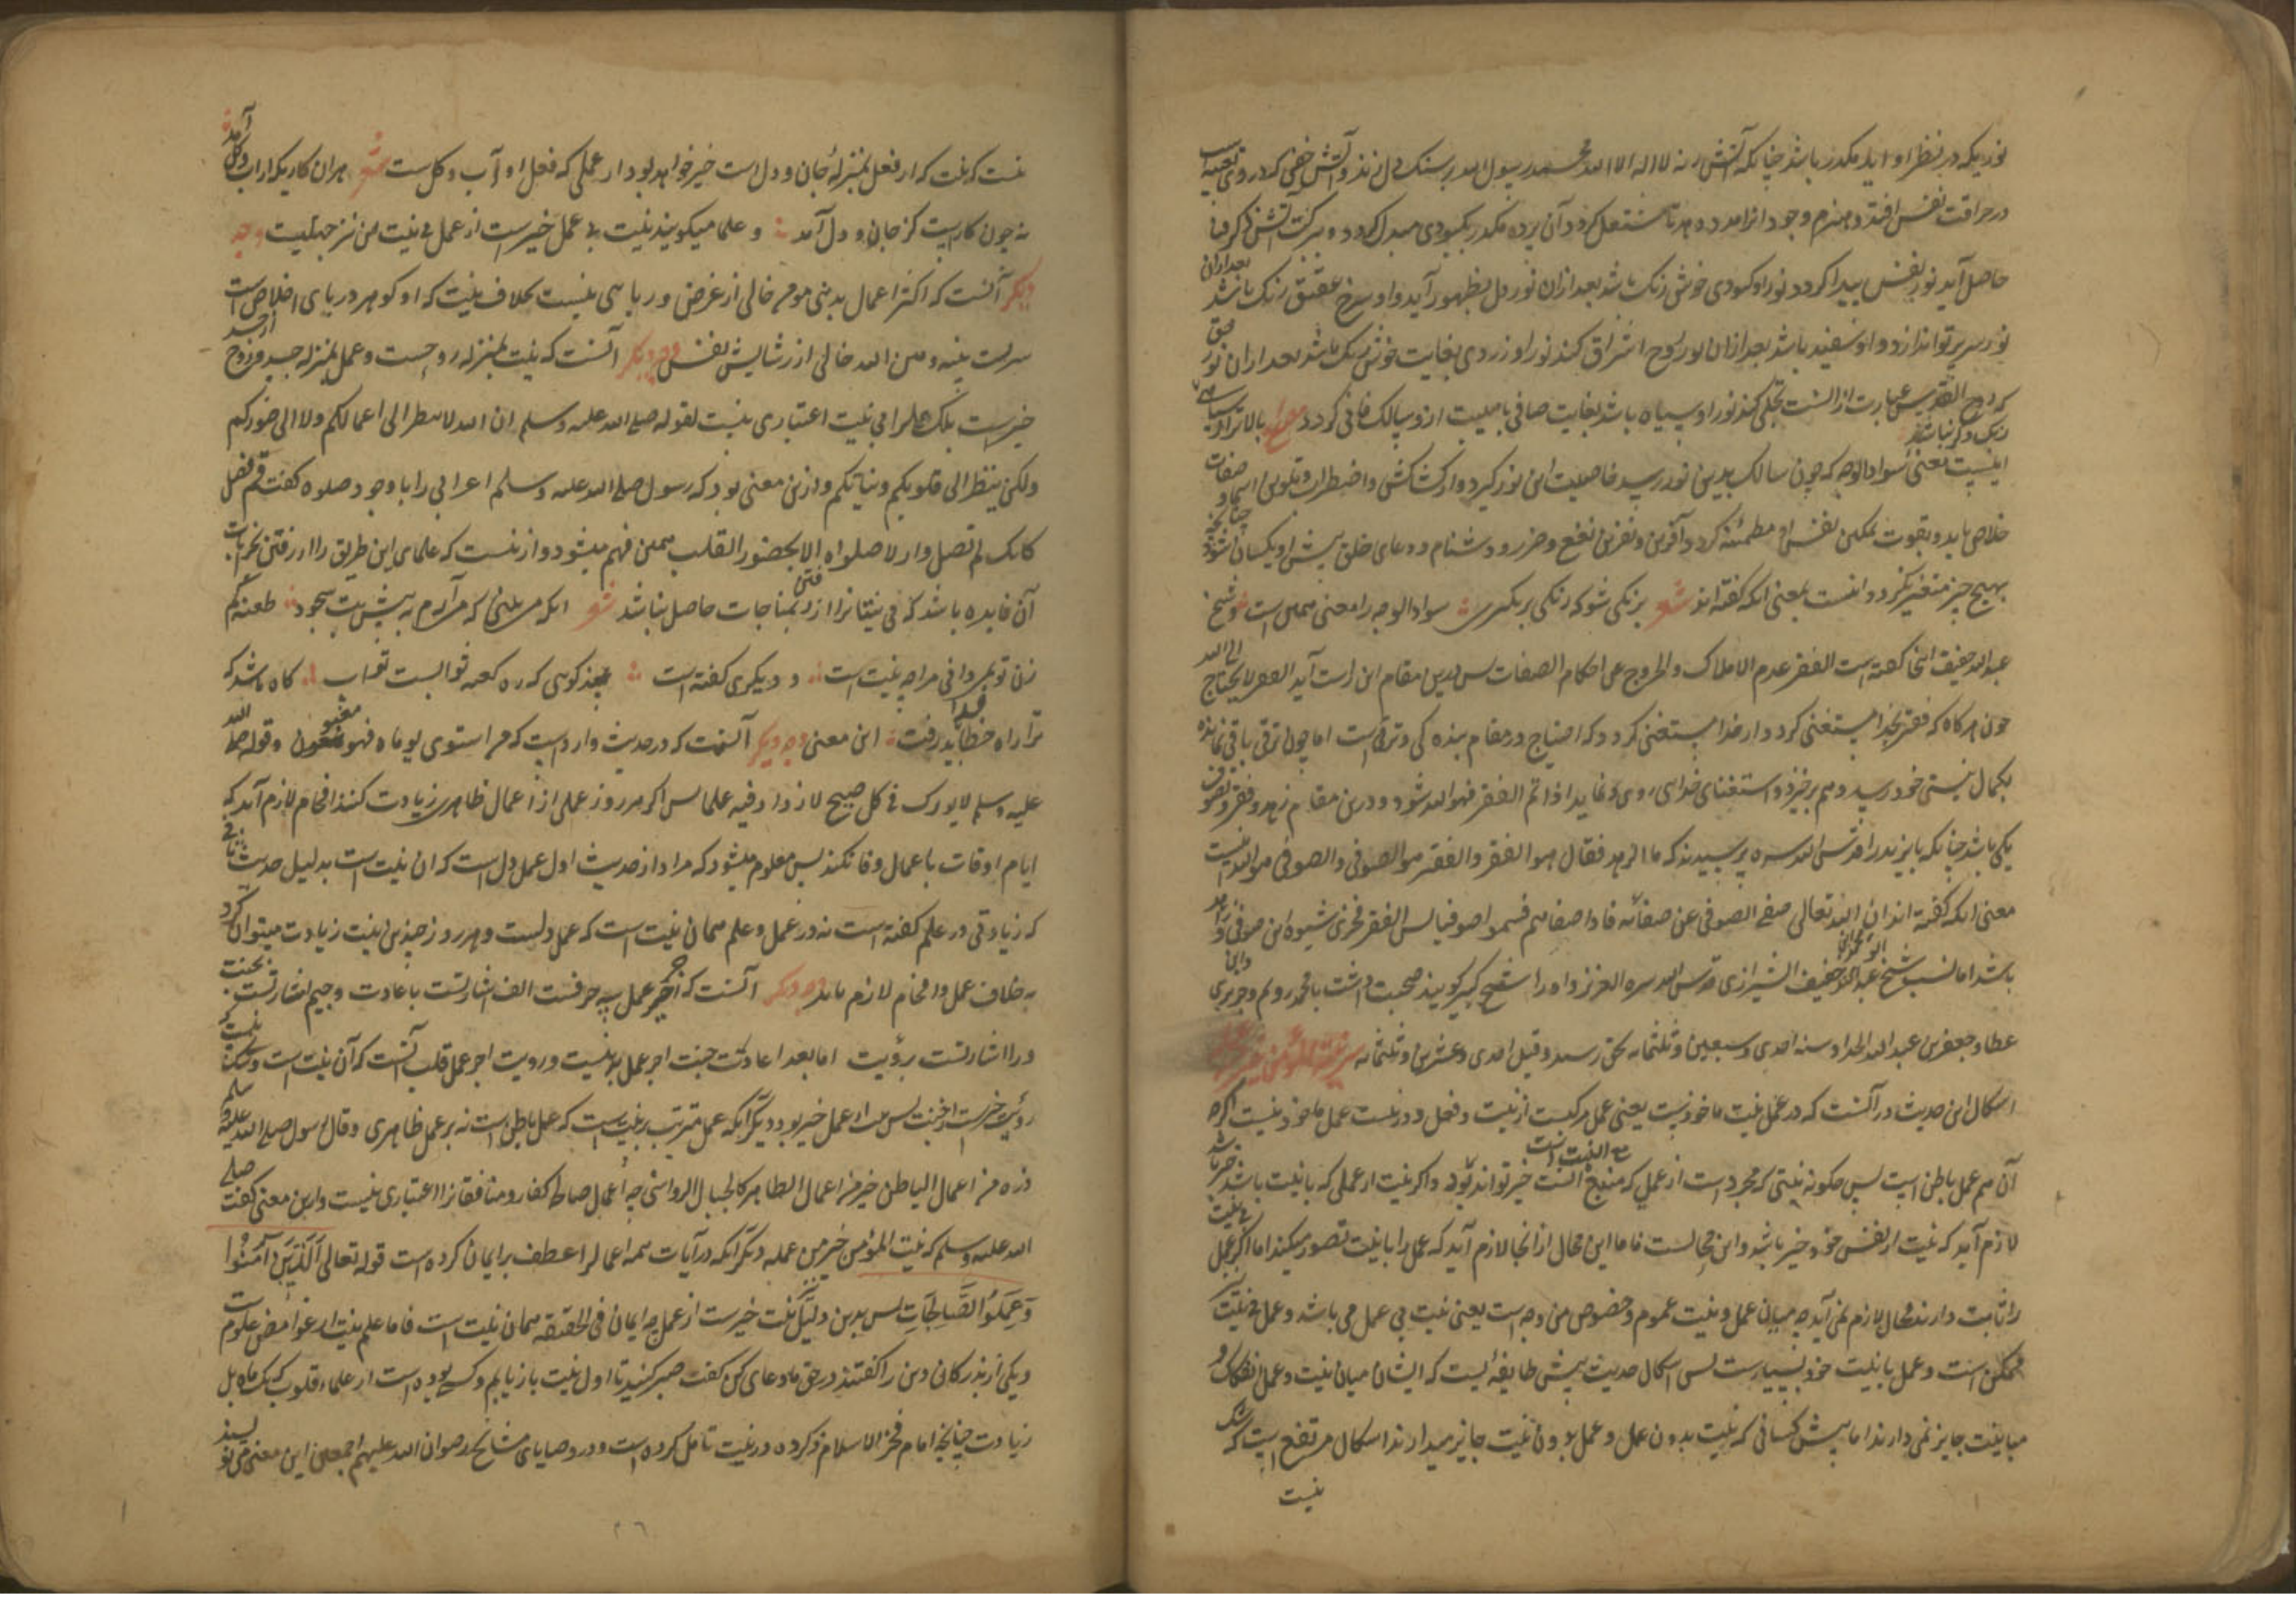 نوریکه در نظر او اید مکدر باشد چنانکه آتش نه لا اله الا الله محمد رسول الله بر سنک دل زند و آتش خفی که در وی تعبیه است
در حراقت نفس افتد و هیزم وجود انرا مدد دهد تا مشتعل کردد آن پرده مکدر بکبودی مبدل کردد و ببرکت آتش ذکر صفا
حاصل آید نور نفس پیدا کردد نور او کبودی خوش رنک باشد بعد ازان نور دل بظهور آید و او سرخ عقیق رنک باشد بعد ازان
نور سر پرتو اندازد و او سفید باشد بعد ازان نور روح اشراق کند نور او زردی بغایت خوش رنک باشد بعد ازان نور حق
که روح القدس عبارت از انست تجلی کند نور او سیاه باشد بغایت صافی باهیبت ازو سالک فانی کردد مصراع بالاتر از سیاهی
رنک دکر نباشد
اینست معنی سواد الوجه که چون سالک بدین نور رسید خاصیت این نور کیرد و از کشاکش و اضطراب و تلوین اسما و صفات
خلاص یابد و بقوت تمکین نفس او مطمئنه کردد و آفرین و نفرین و نفع و ضرر و دشنام و دعای خلق پیش او یکسان شود چنانچه
بهیچ چیز متغیر نکردد و اینست معنی انکه کفته اند شعر برنکی شو که رنکی بر نکیری سواد الوجه را معنی همین است و شیخ
عبد الله خفیف ازینجا کفته است الفقر عدم الاملاک و الخروج عن احکام الصفات پس بدین مقام این راست آید الفقیر لا یحتاج الی الله
چون هرکاه که فقیر بخدا مستغنی کردد از خدا مستغنی کردد که احتیاج در مقام بنده کی و ترقی است اما چون ترقی باقی نمانده
بکمال نیستی خود رسید وهم برخیزد و استغنای خدائی روی نماید اذا تم الفقر فهو الله شود و درین مقام زهد و فقر و تصوف
یکی باشد چنانکه بایزید را قدس الله سره پرسیدند که ما الزهد فقال هو الفقر و الفقر هو الصوفی و الصوفی هو الله اینست
معنی انکه کفته اند ان الله تعالی صفی الصوفی عن صفاته فاذا صفاهم فسموا صوفیا پس الفقر فخری شیوه این صوفی و زاهد
باشد اما نسب شیخ ابو عبد الله خفیف الشیرازی قدس الله سره العزیز و او را شیخ کبیر کویند صحبت داشت با محمد رویم و جریری و ابن
عطا و جعفر بن عبد الله الحداد سنه احدی و سبعین و ثلثمایه بحق رسید و قیل احدی و عشرین و ثلثمایه
اشکال این حدیث در آنست که در عمل نیت ماخوذست یعنی عمل مرکبست از نیت و فعل و در نیت عمل ماخوذ نیست اکرچه
آن هم عمل باطن است پس چکونه نیتی که مجرد است از عملی که منبع آنست خیر تواند بود و اکر نیت از عملی که با نیت باشد خیر باشد
لازم آید که نیت از نفس خود خیر باشد و این محالست فاما این محال از انجا لازم آید که عمل را با نیت تصور میکنید اما اکر عمل بی نیت
را ثابت دارند محال لازم نمی آید چه میان عمل و نیت عموم و خصوص من وجه است یعنی نیت بی عمل می باشد و عمل بی نیت
ممکن است و عمل با نیت خود بسیارست پس اشکال حدیث پیش طایفه ایست که ایشان میان نیت و عمل انفکاک و
مباینت جایز نمی دارند اما پیش کسانی که نیت بدون عمل و عمل بدون نیت جایز میدارند اشکال مرتفع است که
نیست
نیست که نیت که از فعل بمنزلهٔ جان و دل است خیر خواهد بود از عملی که فعل او آب و کل است شعر هران کاریکه از آب و کل آمد
نه چون کاریست کز جان و دل آمد و علما میکویند نیت بی عمل خیر است از عمل بی نیت این نیز جهتیست وجه
دیکر آنست که اکثر اعمال بدنی مومن خالی از غرض و ریایی نیست بخلاف نیت که او کوهر دریای اخلاص است
سریست بینه و بین الله خالی از رشایش نفس وجه دیکر آنست که نیت بمنزله روحست و عمل بمنزله جسد و روح از جسد
خیرست بلکه عمل را بی نیت اعتباری نیست لقوله صلی الله علیه وسلم ان الله لا ینظر الی اعمالکم ولا الی صورکم
ولکن ینظر الی قلوبکم ونیاتکم و ازین معنی بود که رسول صلی الله علیه وسلم اعرابی را با وجود صلوة کفت قم فصل
کانک لم تصل و از لا صلواة الا بحضور القلب همین فهم میشود و ازینست که علمای این طریق را از رفتن بخرابات
آن فایده باشد که بی نیتانرا از رفتن بمناجات حاصل نباشد شعر
زنی تو بمروافی مرا چه نیت است و دیکری کفته است کاه باشد که
ترا راه خطا باید رفت این معنی وجه دیکر آنست که در حدیث وارد است که من استوی یوماه فهو مغبون و قوله صلی الله
علیه وسلم لا بورک فی کل صبیح لا ازداد فیه علما پس اکر هر روز عملی از اعمال ظاهری زیادت کنند افحام لازم آید که
ایام اوقات باعمال وفا نکند پس معلوم میشود که مراد از حدیث اول عمل دل است که ان نیت است بدلیل حدیث ثانی
که زیادتی در علم کفته است نه در عمل و علم همان نیت است که عمل دلست و هر روز چندین نیت زیادت میتوان کرد
به خلاف عمل و افحام لازم ماند وجه دیکر آنست که اجر عمل سه حرفست الف اشارتست باعادت و جیم اشارتست بجنت
و را اشارتست برؤیت اما بعد اعادت جنت اجر عمل بدنیست و رویت اجر عمل قلب آنست که آن نیت است و شک نیست که
رؤیت خیرست از جنت پس نیت از عمل خیر بود دیکر انکه عمل مترتب بر نیت است که عمل باطن است نه بر عمل ظاهری و قال رسول صلی الله علیه وسلم
ذره من اعمال الباطن خیر من اعمال الظاهر کالجبال الرواسی چه اعمال صالح کفار و منافقانرا اعتباری نیست و ازین معنی کفت صلی
الله علیه وسلم که نیت المؤمن خیر من عمله دیکر انکه در آیات همه اعمال را عطف بر ایمان کرده است قوله تعالی الَّذِینَ آمَنُوا
وَعَمِلُوا الصَّالِحَاتِ پس بدین دلیل نیت خیرست از عمل چه ایمان فی الحقیقه همان نیت است فاما علم نیت از غوامض علوم است
و یکی از بزرکان دین را کفتند در حق ما دعای کن کفت صبر کنید تا اول نیت باز یابم و کسی بوده است از علماء قلوب که یک ماه بل
زیادت چنانچه امام فخر الاسلام ذکر کرده در نیت تامل کرده است و در وصایای مشایخ رضوان الله علیهم اجمعین این معنی می نویسند
۲۶